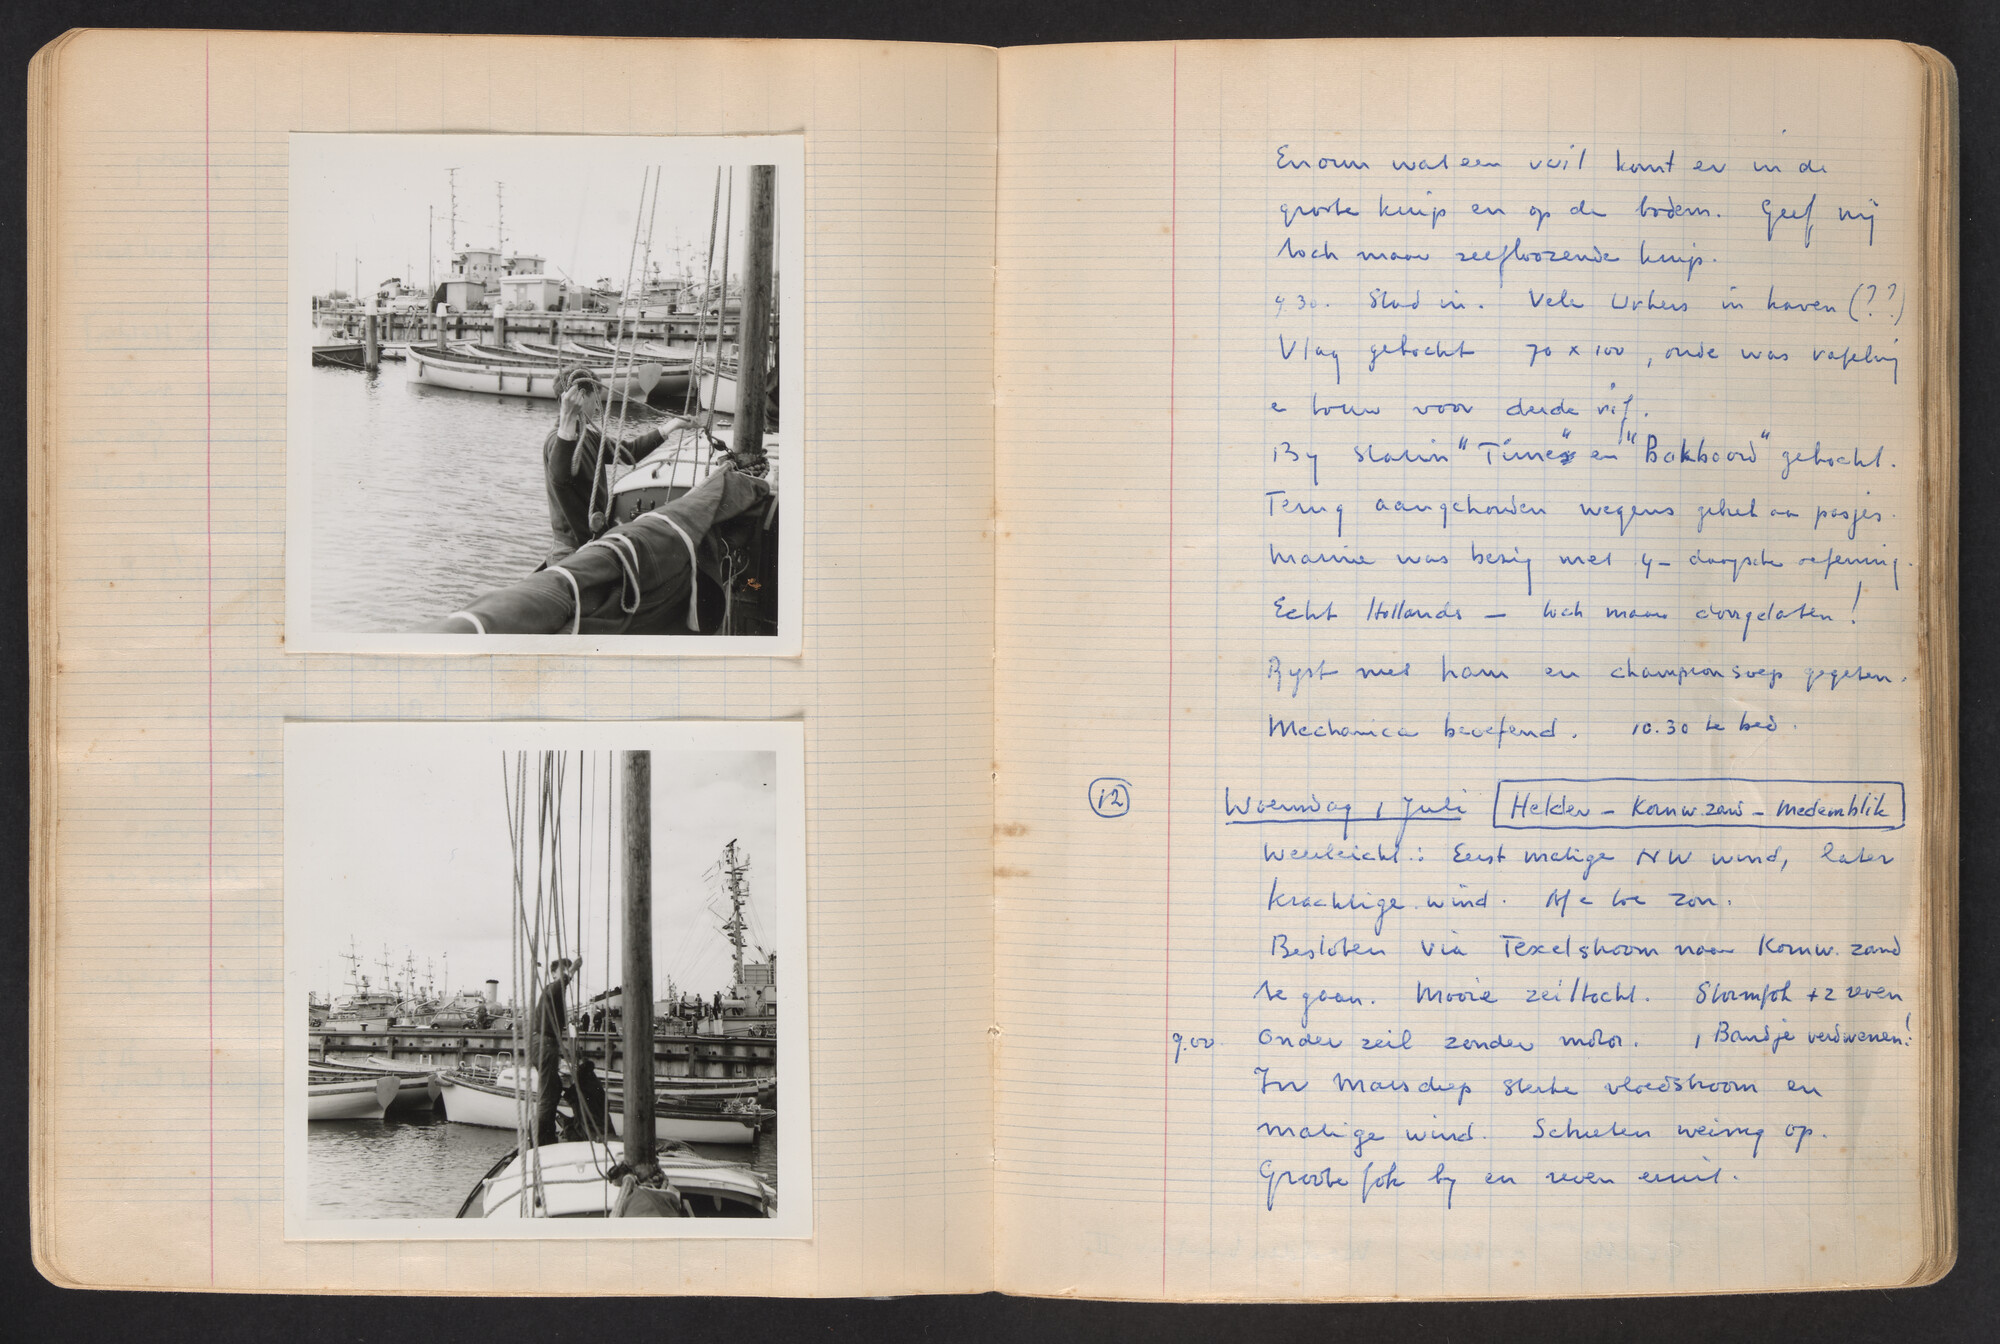 Enorm wat een vuil komt er in de
groote kuip en op de bodem. Geef mij
toch maar zelfloozende kuip.
4.30. Stad in. Vele Urkers in haven (??)
Vlag gekocht 70 x 100, oude was rafelig
e touw voor derde rif.
By Statin "Times" en "Bakboord" gekocht.
Terug aangehouden wegens gebrek aan pasjes.
Marine was bezig met 4-daagsche oefening.
Echt Hollands - toch maar doorgelaten!
Ryst met ham en championsoep gegeten.
Mechanica beoefend. 10.30 te bed.
12 Woensdag 1 Juli Helder - Kornw.zand - Medemblik
Weerbericht: Eerst matige NW wind, later
krachtige wind. Af e toe zon.
Besloten via Texelstroom naar Kornw. zand
te gaan. Mooie zeiltocht. Stormfok + 2 reven
9.00 Onder zeil zonder motor. 1 Bandje verdwenen!
In Marsdiep sterke vloedstroom en
matige wind. Schieten weinig op.
Groote fok by en reven eruit.